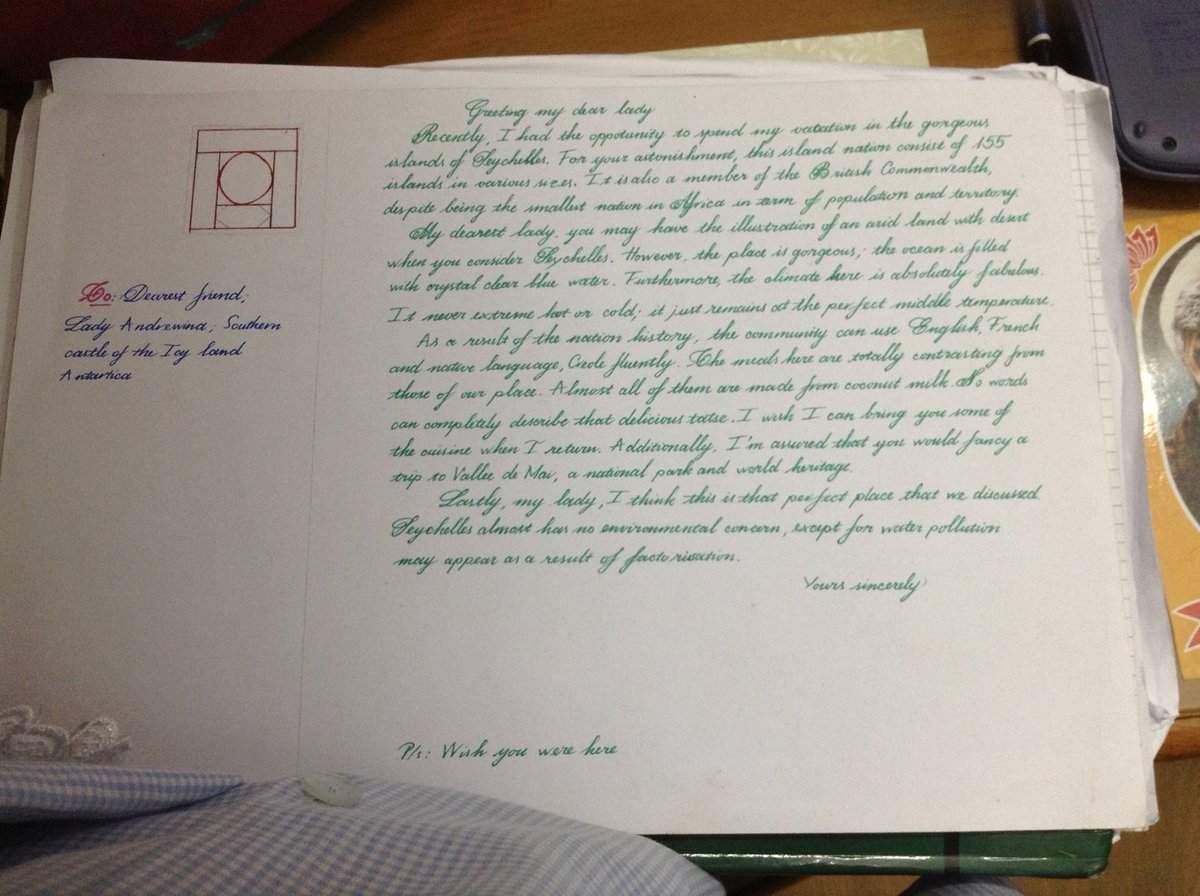 To: Dearest friend,
Lady Andrewina, Southern
castle of the Icy land
Antartica
Greeting my dear lady
Recently, I had the oppotunity to spend my vatation in the gorgeous
islands of Seychelles. For your astonishment, this island nation consist of 155
islands in various sizes. It is also a member of the British Commonwealth,
despite being the smallest nation in Africa in term of population and territory.
My dearest lady, you may have the illustration of an arid land with desert
when you consider Seychelles. However, the place is gorgeous; the ocean is filled
with crystal clear blue water. Furthermore, the climate here is absolutely fabulous.
It never extreme hot or cold; it just remains at the perfect middle temperature.
As a result of the nation history, the community can use English, French
and native language, Creole fluently. The meals here are totally contrasting from
those of our place. Almost all of them are made from coconut milk. No words
can completely describe that delicious tatse. I wish I can bring you some of
the cuisine when I return. Additionally, I'm assured that you would fancy a
trip to Vallée de Mai, a national park and world heritage.
Lastly, my lady, I think this is that perfect place that we discussed.
Seychelles almost has no environmental concern, except for water pollution
may appear as a result of factorisation.
Yours sincerely
P/s: Wish you were here